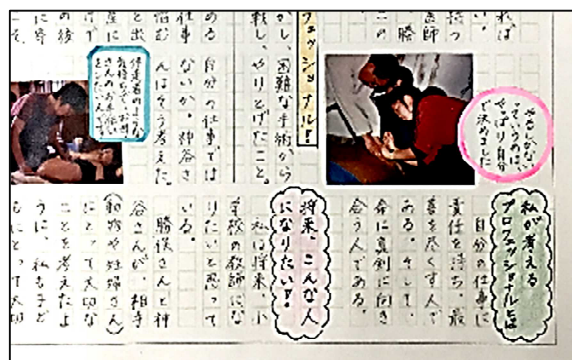 れば
持つ
医師
、勝
やるしかない
っていうのは、
やっぱり自分
で決めました
フェッショナル!
かし、困難な手術から
戦し、やりとげたこと。
ある
自分の仕事では
仕事
ないか。神谷さ
悩む
んはそう考えた。
伴走者のような
気持ちで、お母
と出
産に
の後
に寄
私が考える
プロフェッショナルとは
自分の仕事に
責任を持ち、最
善を尽くす人で
ある。そして、
命に真剣に向き
合う人である。
将来、こんな人
になりたい!
私は将来、小
学校の教師にな
りたいと思って
いる。
勝俣さんと神
谷さんが、相手
(動物や妊婦さん)
にとって大切な
ことを考えたよ
うに、私も子ど
もにとって大切